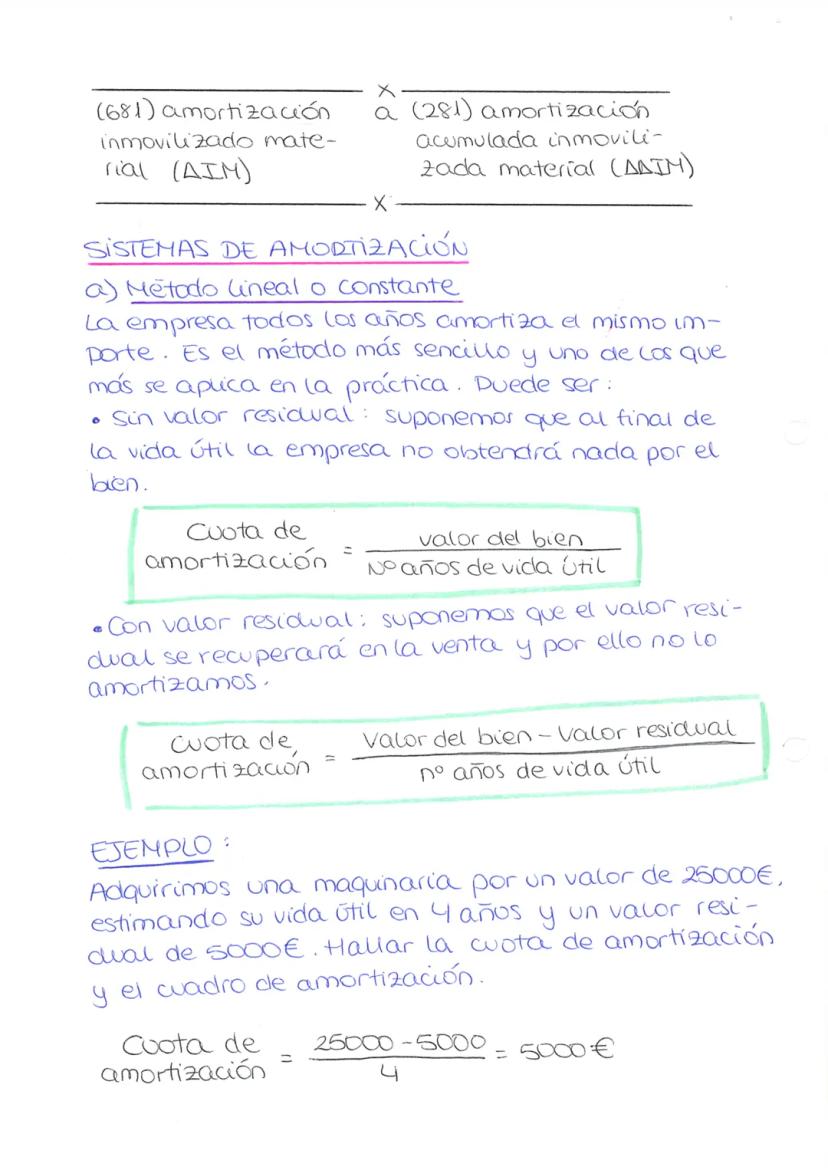 x
(681) amortización a (281) amortización
inmovilizado mate- acumulada inmovili-
rial (AIM) zada material (AAIM)
x
SISTEMAS DE AMORTIZACIÓN
a) Método lineal o constante
La empresa todos los años amortiza el mismo im-
porte. Es el método más sencillo y uno de los que
más se aplica en la práctica. Puede ser:
• Sin valor residual: suponemos que al final de
la vida útil la empresa no obtendrá nada por el
bien.
Cuota de amortización = valor del bien / Nº años de vida útil
• Con valor residual: suponemos que el valor resi-
dual se recuperará en la venta y por ello no lo
amortizamos.
Cuota de amortización = Valor del bien - Valor residual / nº años de vida útil
EJEMPLO:
Adquirimos una maquinaria por un valor de 25000€,
estimando su vida útil en 4 años y un valor resi-
dual de 5000€. Hallar la cuota de amortización
y el cuadro de amortización.
Cuota de amortización = 25000 - 5000 / 4 = 5000€